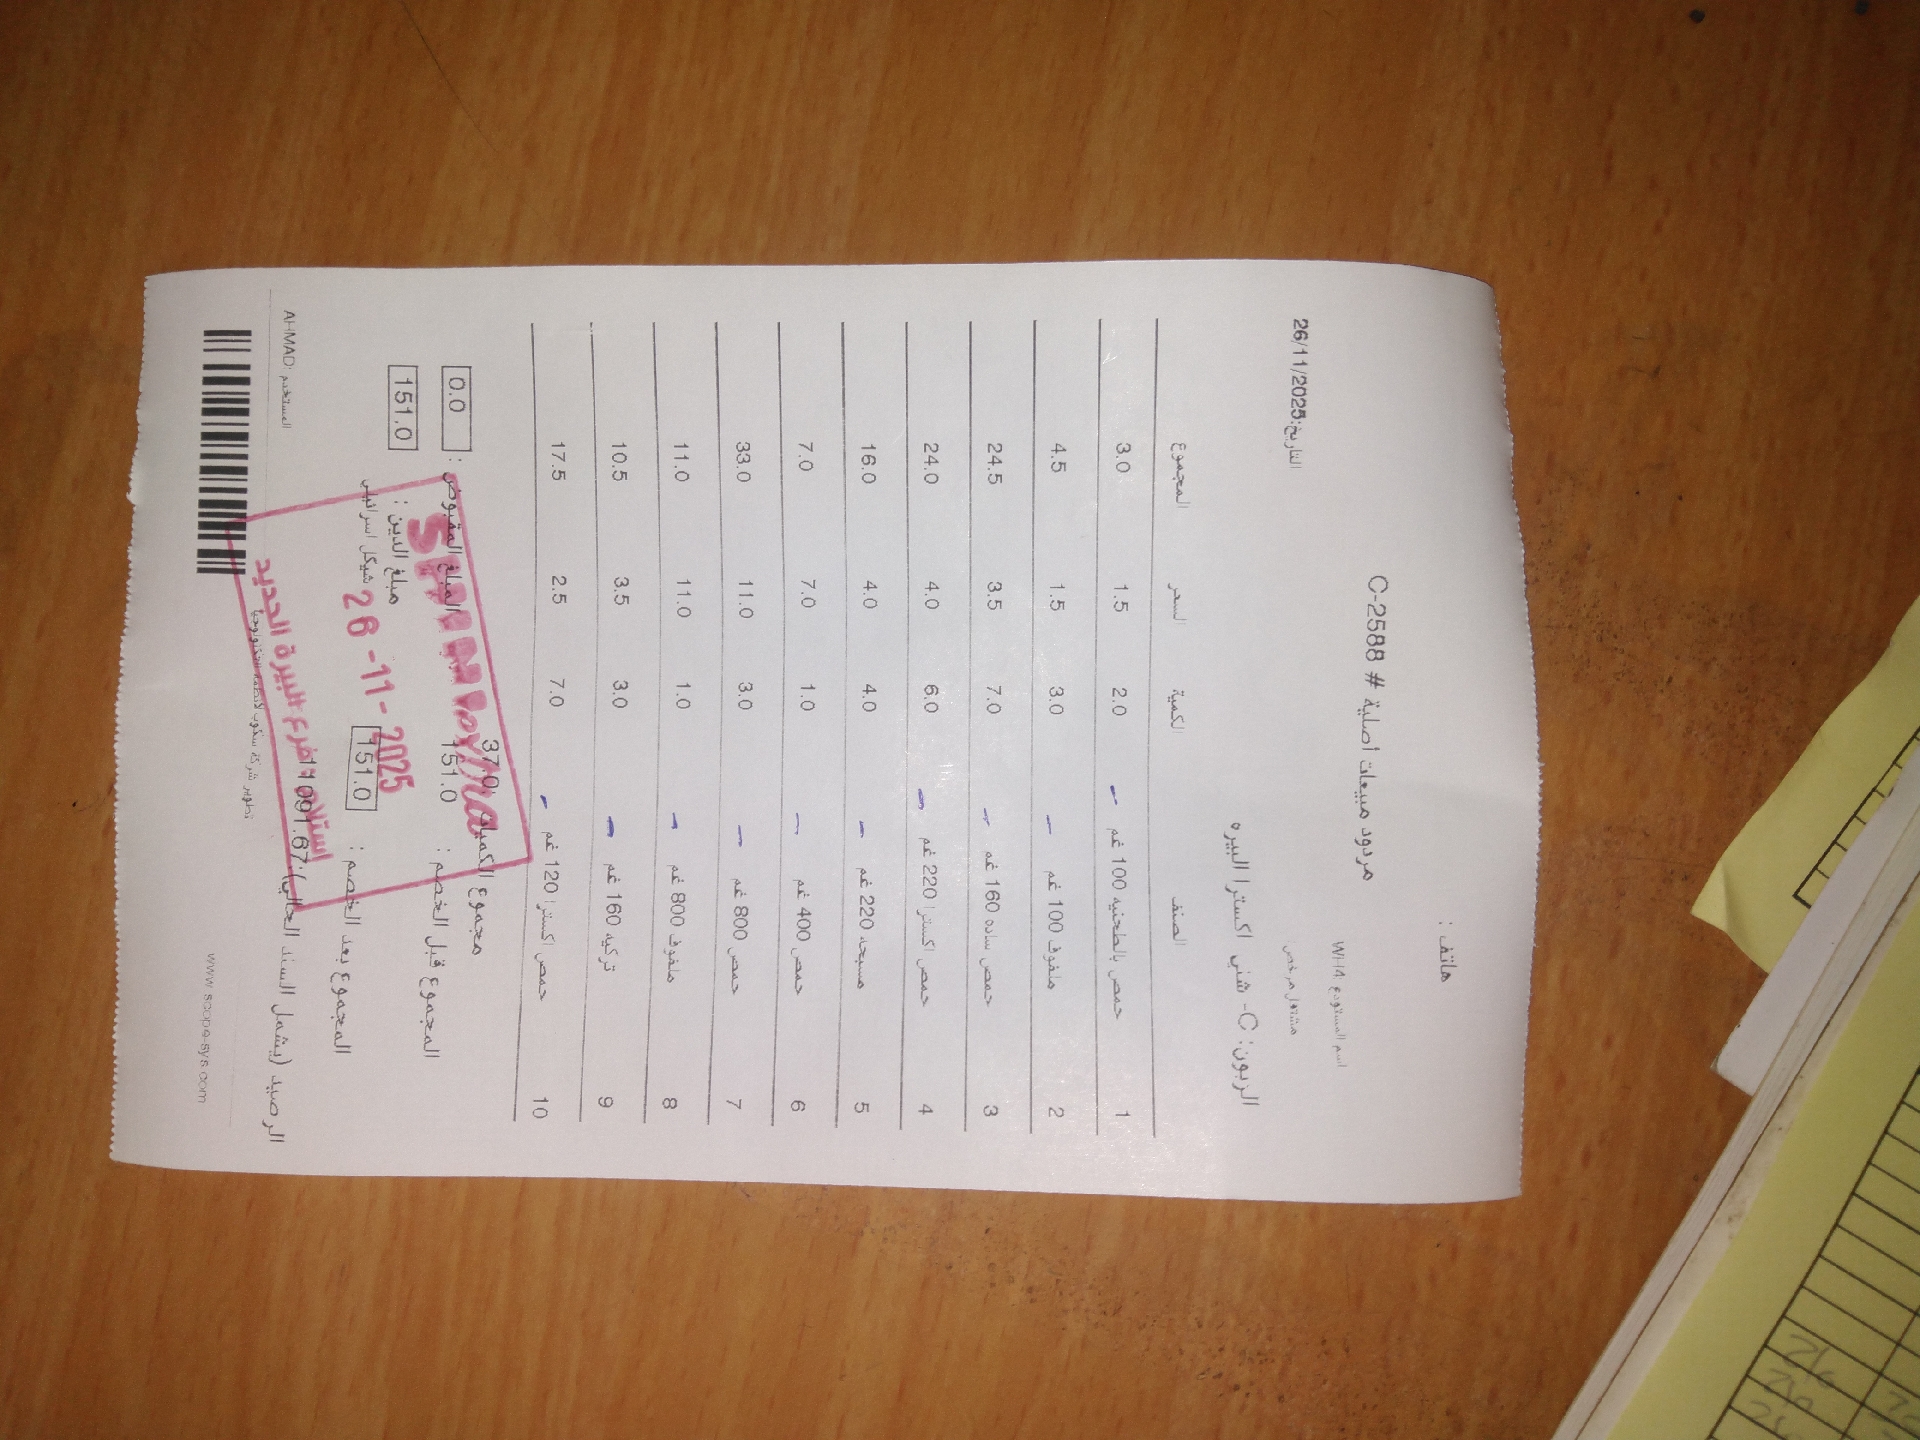 هاتف :
مردود مبيعات اصلية # C-2588
اسم المستودع WH4
مشتغل مرخص:
التاريخ:26/11/2025
الزبون: C- شني اكسترا البيره
الصنف الكمية السعر المجموع
1 حمص بالطحنيه 100 غم 2.0 1.5 3.0
2 ملفوف 100 غم 3.0 1.5 4.5
3 حمص ساده 160 غم 7.0 3.5 24.5
4 حمص اكسترا 220 غم 6.0 4.0 24.0
5 مسبحه 220 غم 4.0 4.0 16.0
6 حمص 400 غم 1.0 7.0 7.0
7 حمص 800 غم 3.0 11.0 33.0
8 ملفوف 800 غم 1.0 11.0 11.0
9 تركيه 160 غم 3.0 3.5 10.5
10 حمص اكسترا 120 غم 7.0 2.5 17.5
مجموع الكميات 37.0
المجموع قبل الخصم : 151.0 المبلغ المقبوض : 0.0
المجموع بعد الخصم : 151.0 مبلغ الدين : 151.0
شيكل اسرائيلي
26 -11- 2025
الرصيد (يشمل السند الحالي)
استلام فرع البيرة الجديد
المستخدم :AHMAD
تطوير شركة سكوب لانظمة التكنولوجيا
www.scope-sys.com